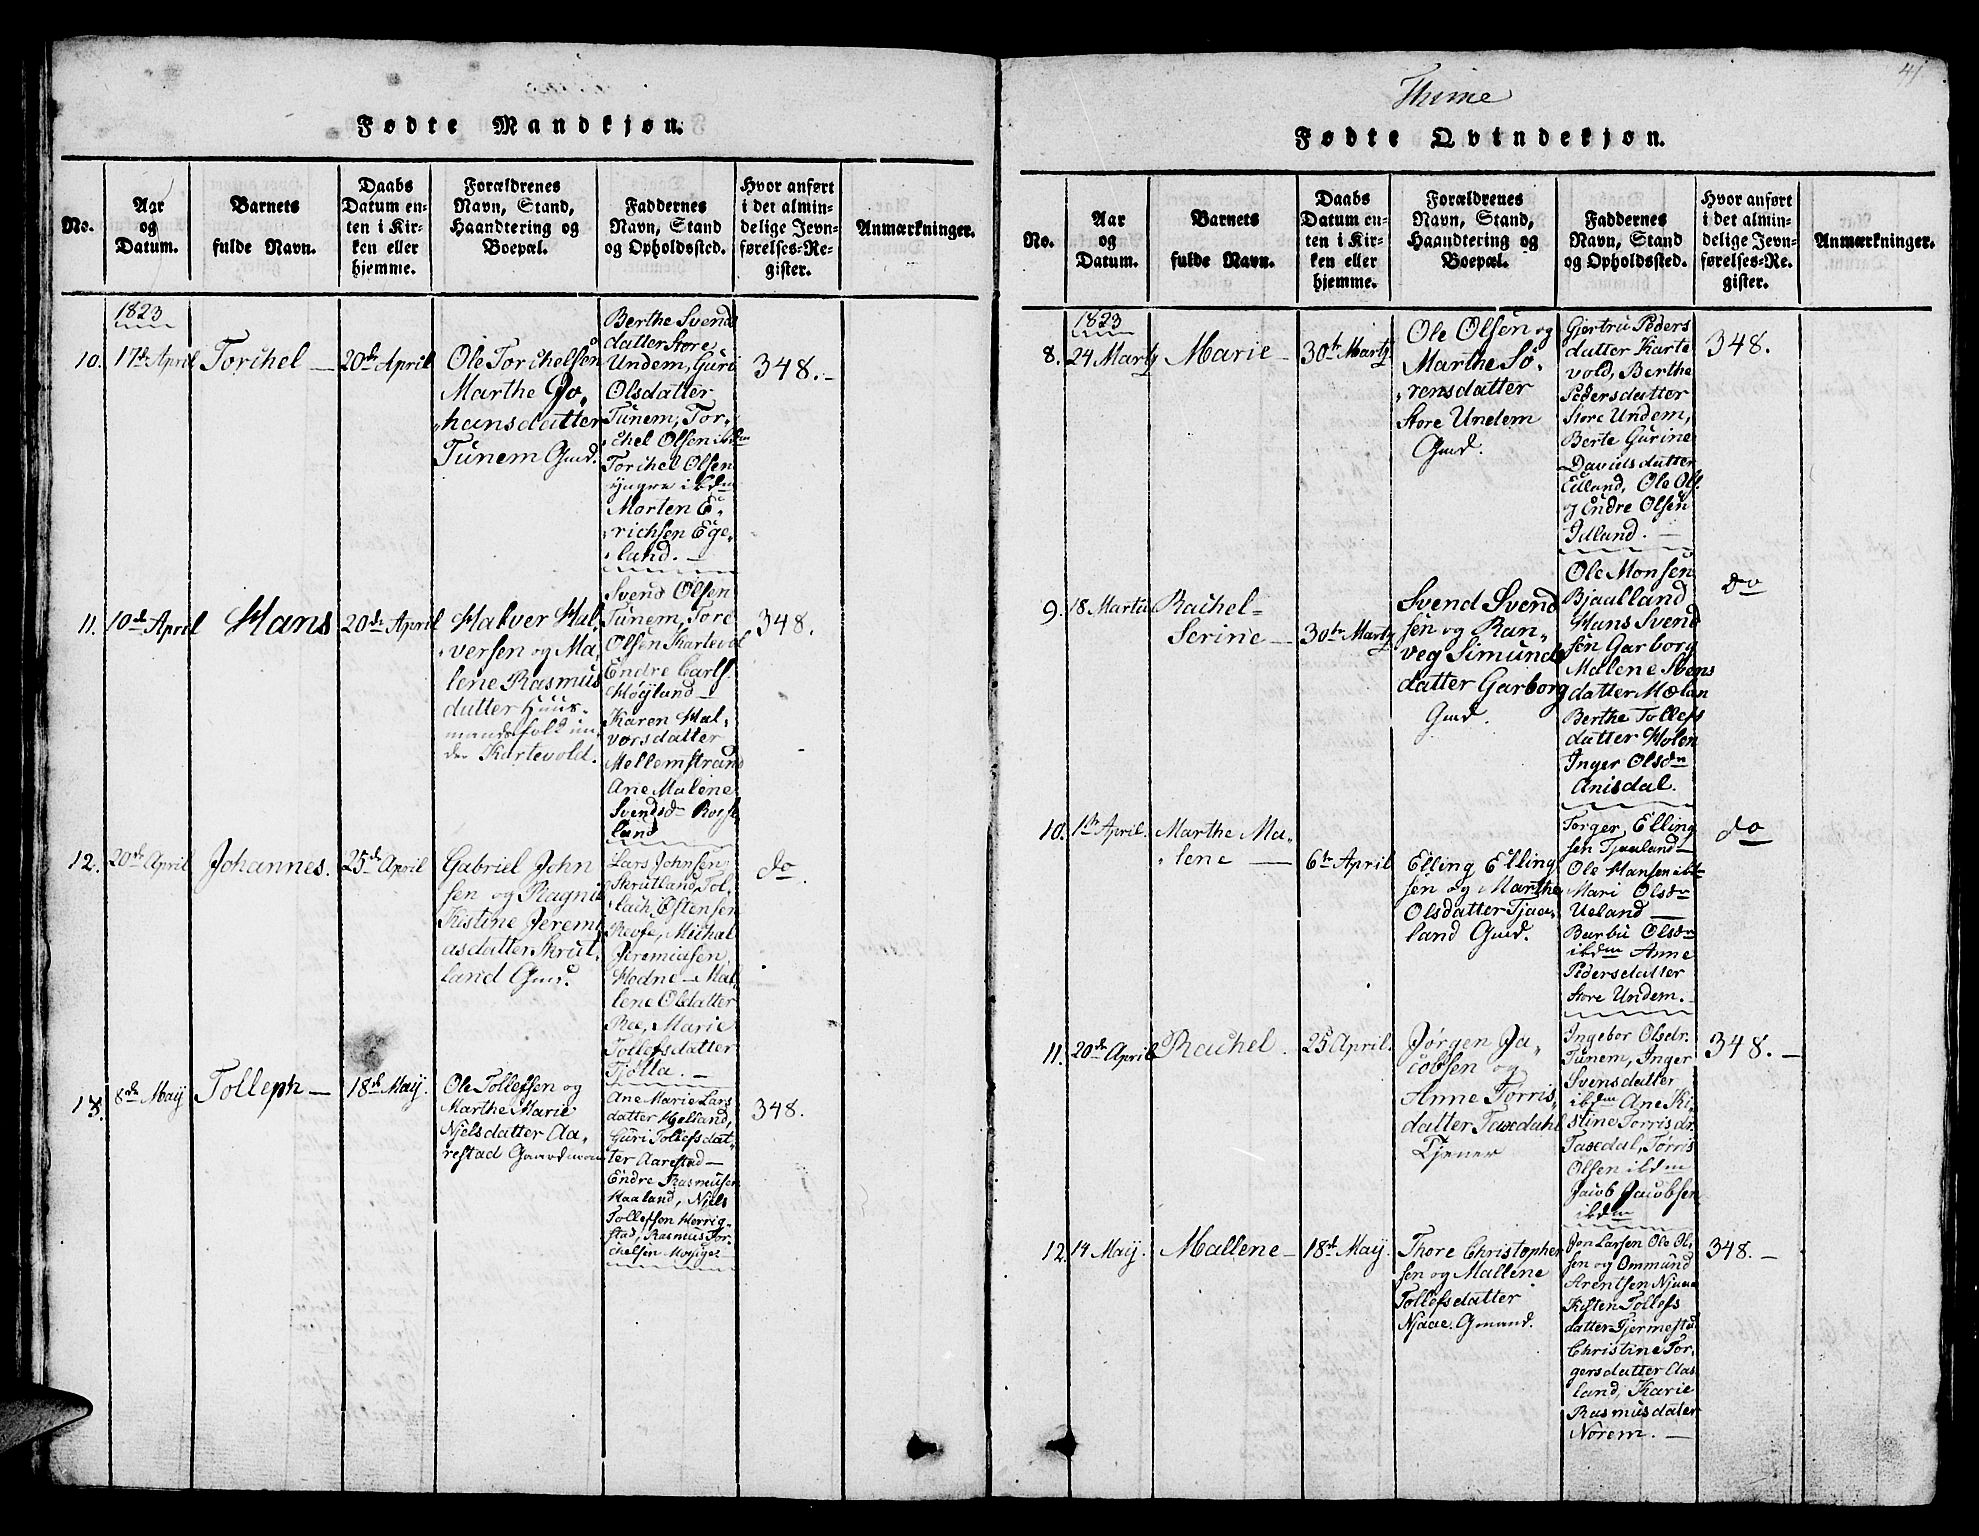 Fødte Mandkjøn.
No.
Aar
og
Datum.
Barnets
fulde Navn.
Daabs
Datum en-
ten i Kir-
ken eller
hjemme.
Forældrenes
Navn, Stand,
Haandtering og
Boepæl.
Faddernes
Navn, Stand
og Opholdssted.
Hvor anført
i det almin-
delige Jevn-
førelses-Re-
gister.
Anmærkninger.
1823
10.
17de April
Torchel —
20de April
Ole Torchelsen
Marthe Jo„
„hansdatter
Tunem Gmd.
Berthe Svends
datter Store
Undem, Guri
Olsdatter
Tunem, Tor„
„chel Olsen ibdm
Torchel Olsen
yngre ibdm
Morten E„
„richsen Ege„
„land. —
348. -
11.
10de April
Hans
20de April
Halver Hal„
„versen og Ma„
lene Rasmus
datter Huus-
mandsfolk un„
der Kartevold.
Svend Olsen
Tunem, Tore
Olsen Kartevol
Endre Carls.
Høyland —
Karen Hal„
vorsdatter
Mellemstrand
Ane Malene
Svendsdr
land
348.
12.
20de April
Johannes.
25de April
Gabriel John
sen og Ragni
Kistine Jeremi
asdatter Skrut„
land Gmd.
Lars Johnsen
Skrutland, Tol„
„lach Østensen
Roofe, Michal
Jeremiasen
Hodne — Mal
lene Olsdatter
Roe, Marie
Tollefsdatter
Tjøtta. —
do
13.
8de May
Tolleph —
18de May.
Ole Tollefsen og
Marthe Marie
Njelsdatter Aa„
restad Gaardman
Ane Marie Lars
datter Helland,
Guri Tollefsdat„
ter Aarestad —
Endre Rasmusen
Haaland, Njels
Tollefsen Herrig„
stad, Rasmus Tor„
chelsen
348.
41
Thime
Fødte Qvindekjøn.
No.
Aar
og
Datum.
Barnets
fulde Navn.
Daabs
Datum en-
ten i Kir-
ken eller
hjemme.
Forældrenes
Navn, Stand,
Haandtering og
Boepæl.
Faddernes
Navn, Stand
og Opholdssted.
Hvor anført
i det almin-
delige Jevn-
førelses-Re-
gister.
Anmærkninger.
1823
8.
24 Marty
Marie —
30te Marty
Ole Olsen og
Marthe Sö„
„rensdatter
Store Undem
Gmd.
Gjertru Peders
datter Karte
vold, Berthe
Pedersdatter
Store Undem,
Berte Gurine
Davidsdatter
Eiland, Ole Ols.
og Endre Olsen
348.
9.
18. Martii
Rachel=
Serine —
30te Marty
Svend Svend
sen og Ran„
veg Simunds
datter Garborg
Gmd.
Ole Monsen
Bjaalland
Hans Svend
sen Garborg
Malene Svens
datter Mælan
Berthe Tollefs
datter Holen
Inger Olsdr
Anisdal.
do
10.
1te April.
Marthe Ma„
„lene —
6te April
Elling Elling
sen og Marthe
Olsdatter Tjaa„
land Gmd.
Torger Elling
sen Tjaaland —
Ole Hansen ibdm
Mari Olsdr
Ueland —
Barbu Olsdr
ibdm Anne
Pedersdatter
Store Undem. —
do
11.
20de April
Rachel.
25 April.
Jørgen Ja„
cobsen og
Anne Torris„
datter Taxdahl
Tjener
Ingebor Olsdr.
Tunem, Inger
Svensdatter
ibdm Ane Ki„
stine Torrisdr.
Taxdal, Torris
Olsen ibdm
Jacob Jacobsen
ibdm
348. —
12.
14 May.
Mallene —
18de May.
Thore Christopher
sen og Mallene
Tollefsdatter
Njaae. Gmand.
Jon Larsen Ole Ol„
sen og Ommund
Arentsen Njaae
Kisten Tollefs
datter Tjermestad
Christine Tor„
gersdatter Aas
land, Karie
Rasmusdater
Norem. —
348. —